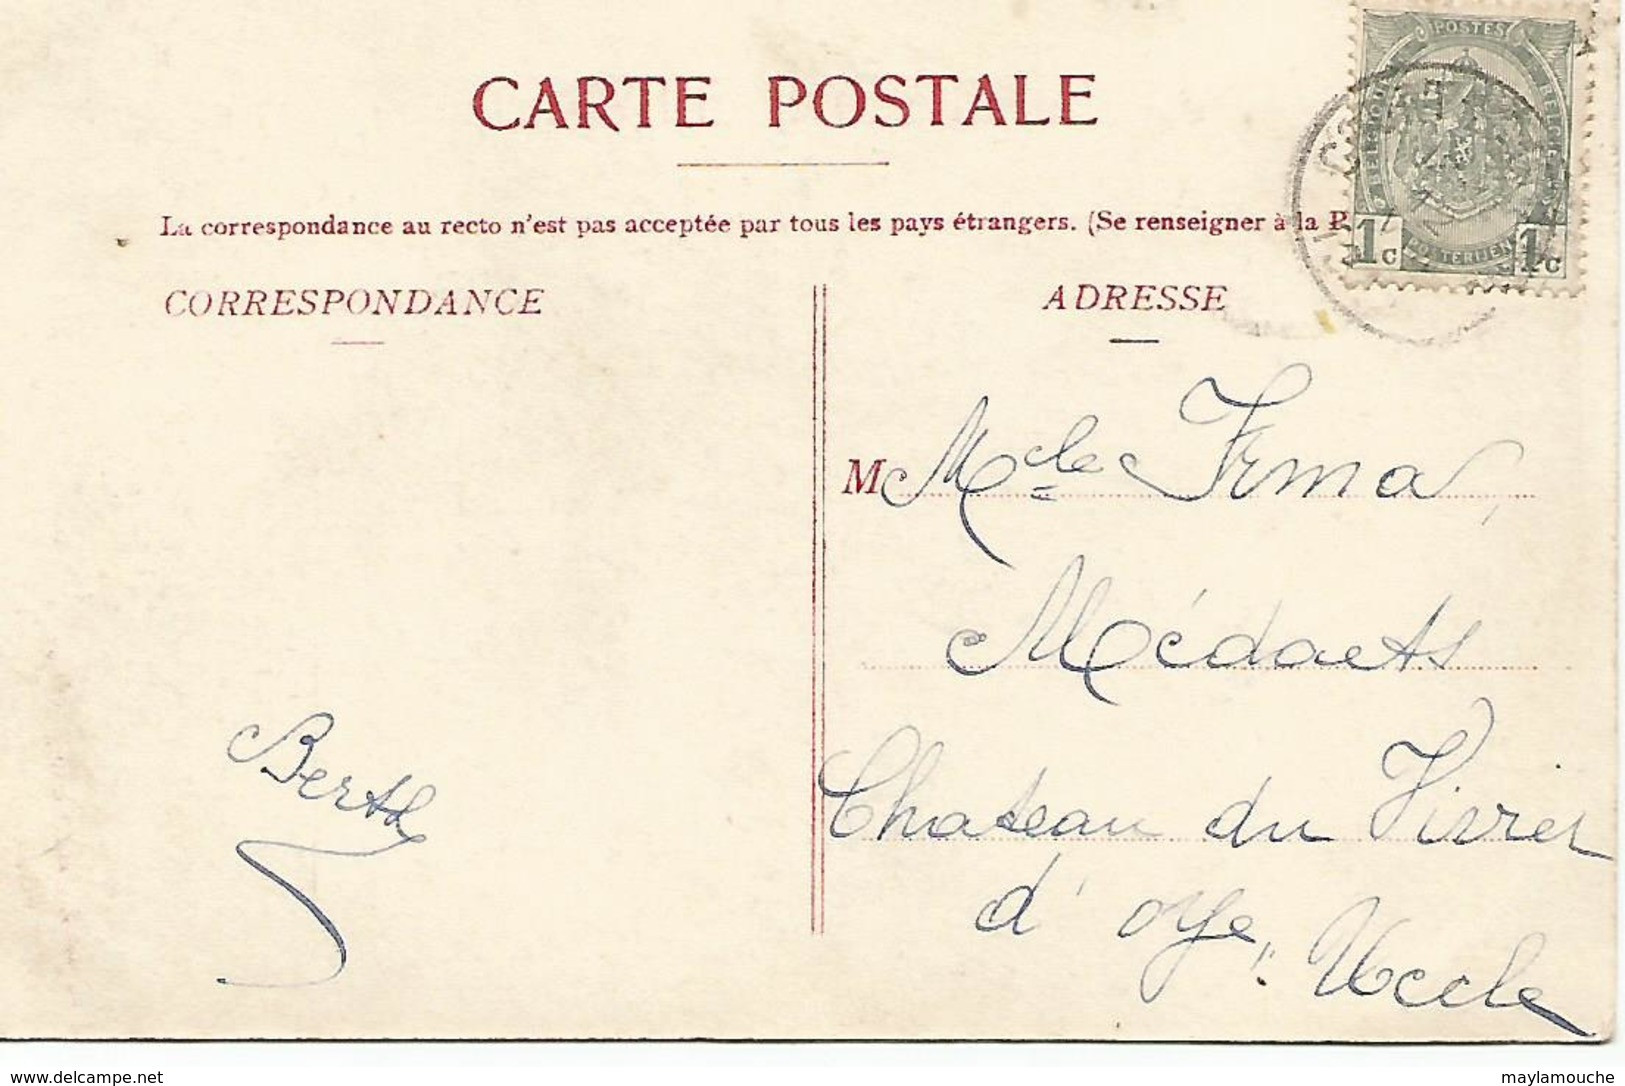 CARTE POSTALE
La correspondance au recto n'est pas acceptée par tous les pays étrangers. (Se renseigner à la P
CORRESPONDANCE
ADRESSE
POSTES
BELGIQUE
BELGIE
POSTERIJEN
1c 1c
M Melle Irma,
Médaets
Chateau du Vivier
d'oye, Uccle
Berthe
www.delcampe.net
maylamouche